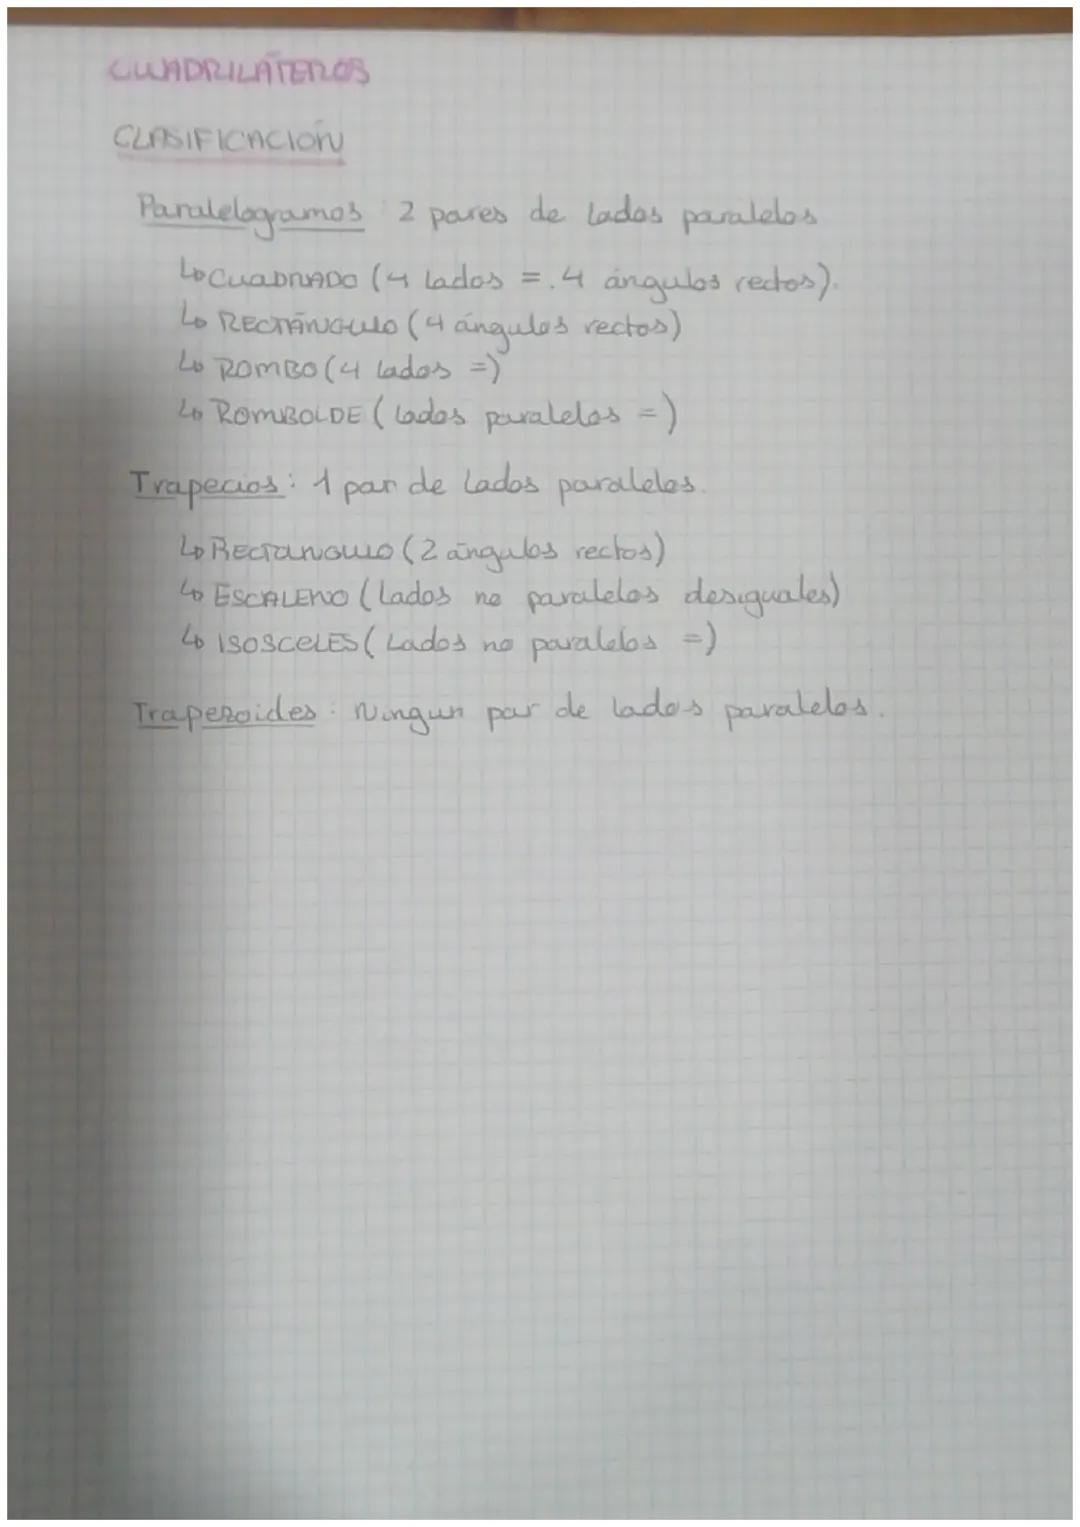 CUADRILÁTEROS
CLASIFICACIÓN
Paralelogramos: 2 pares de lados paralelos
↳ CUADRADO (4 lados =. 4 ángulos rectos).
↳ RECTÁNGULO (4 ángulos rectos)
↳ ROMBO (4 lados =)
↳ ROMBOIDE (lados paralelos =)
Trapecios: 1 par de lados paralelos.
↳ RECTANGULO (2 ángulos rectos)
↳ ESCALENO (Lados no paralelos desiguales)
↳ ISOSCELES (Lados no paralelos =)
Trapezoides: Ningun par de lados paralelos.